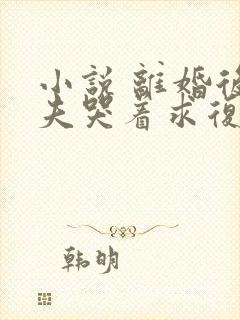 小説 離婚後
夫哭着求復
韩明